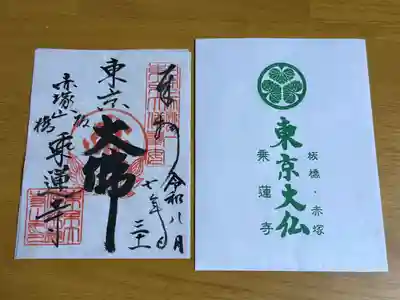 奉拝
令和
七年
八月
東京
大佛
板橋
赤塚山
乗蓮寺
板橋・赤塚
東京大仏
乗蓮寺